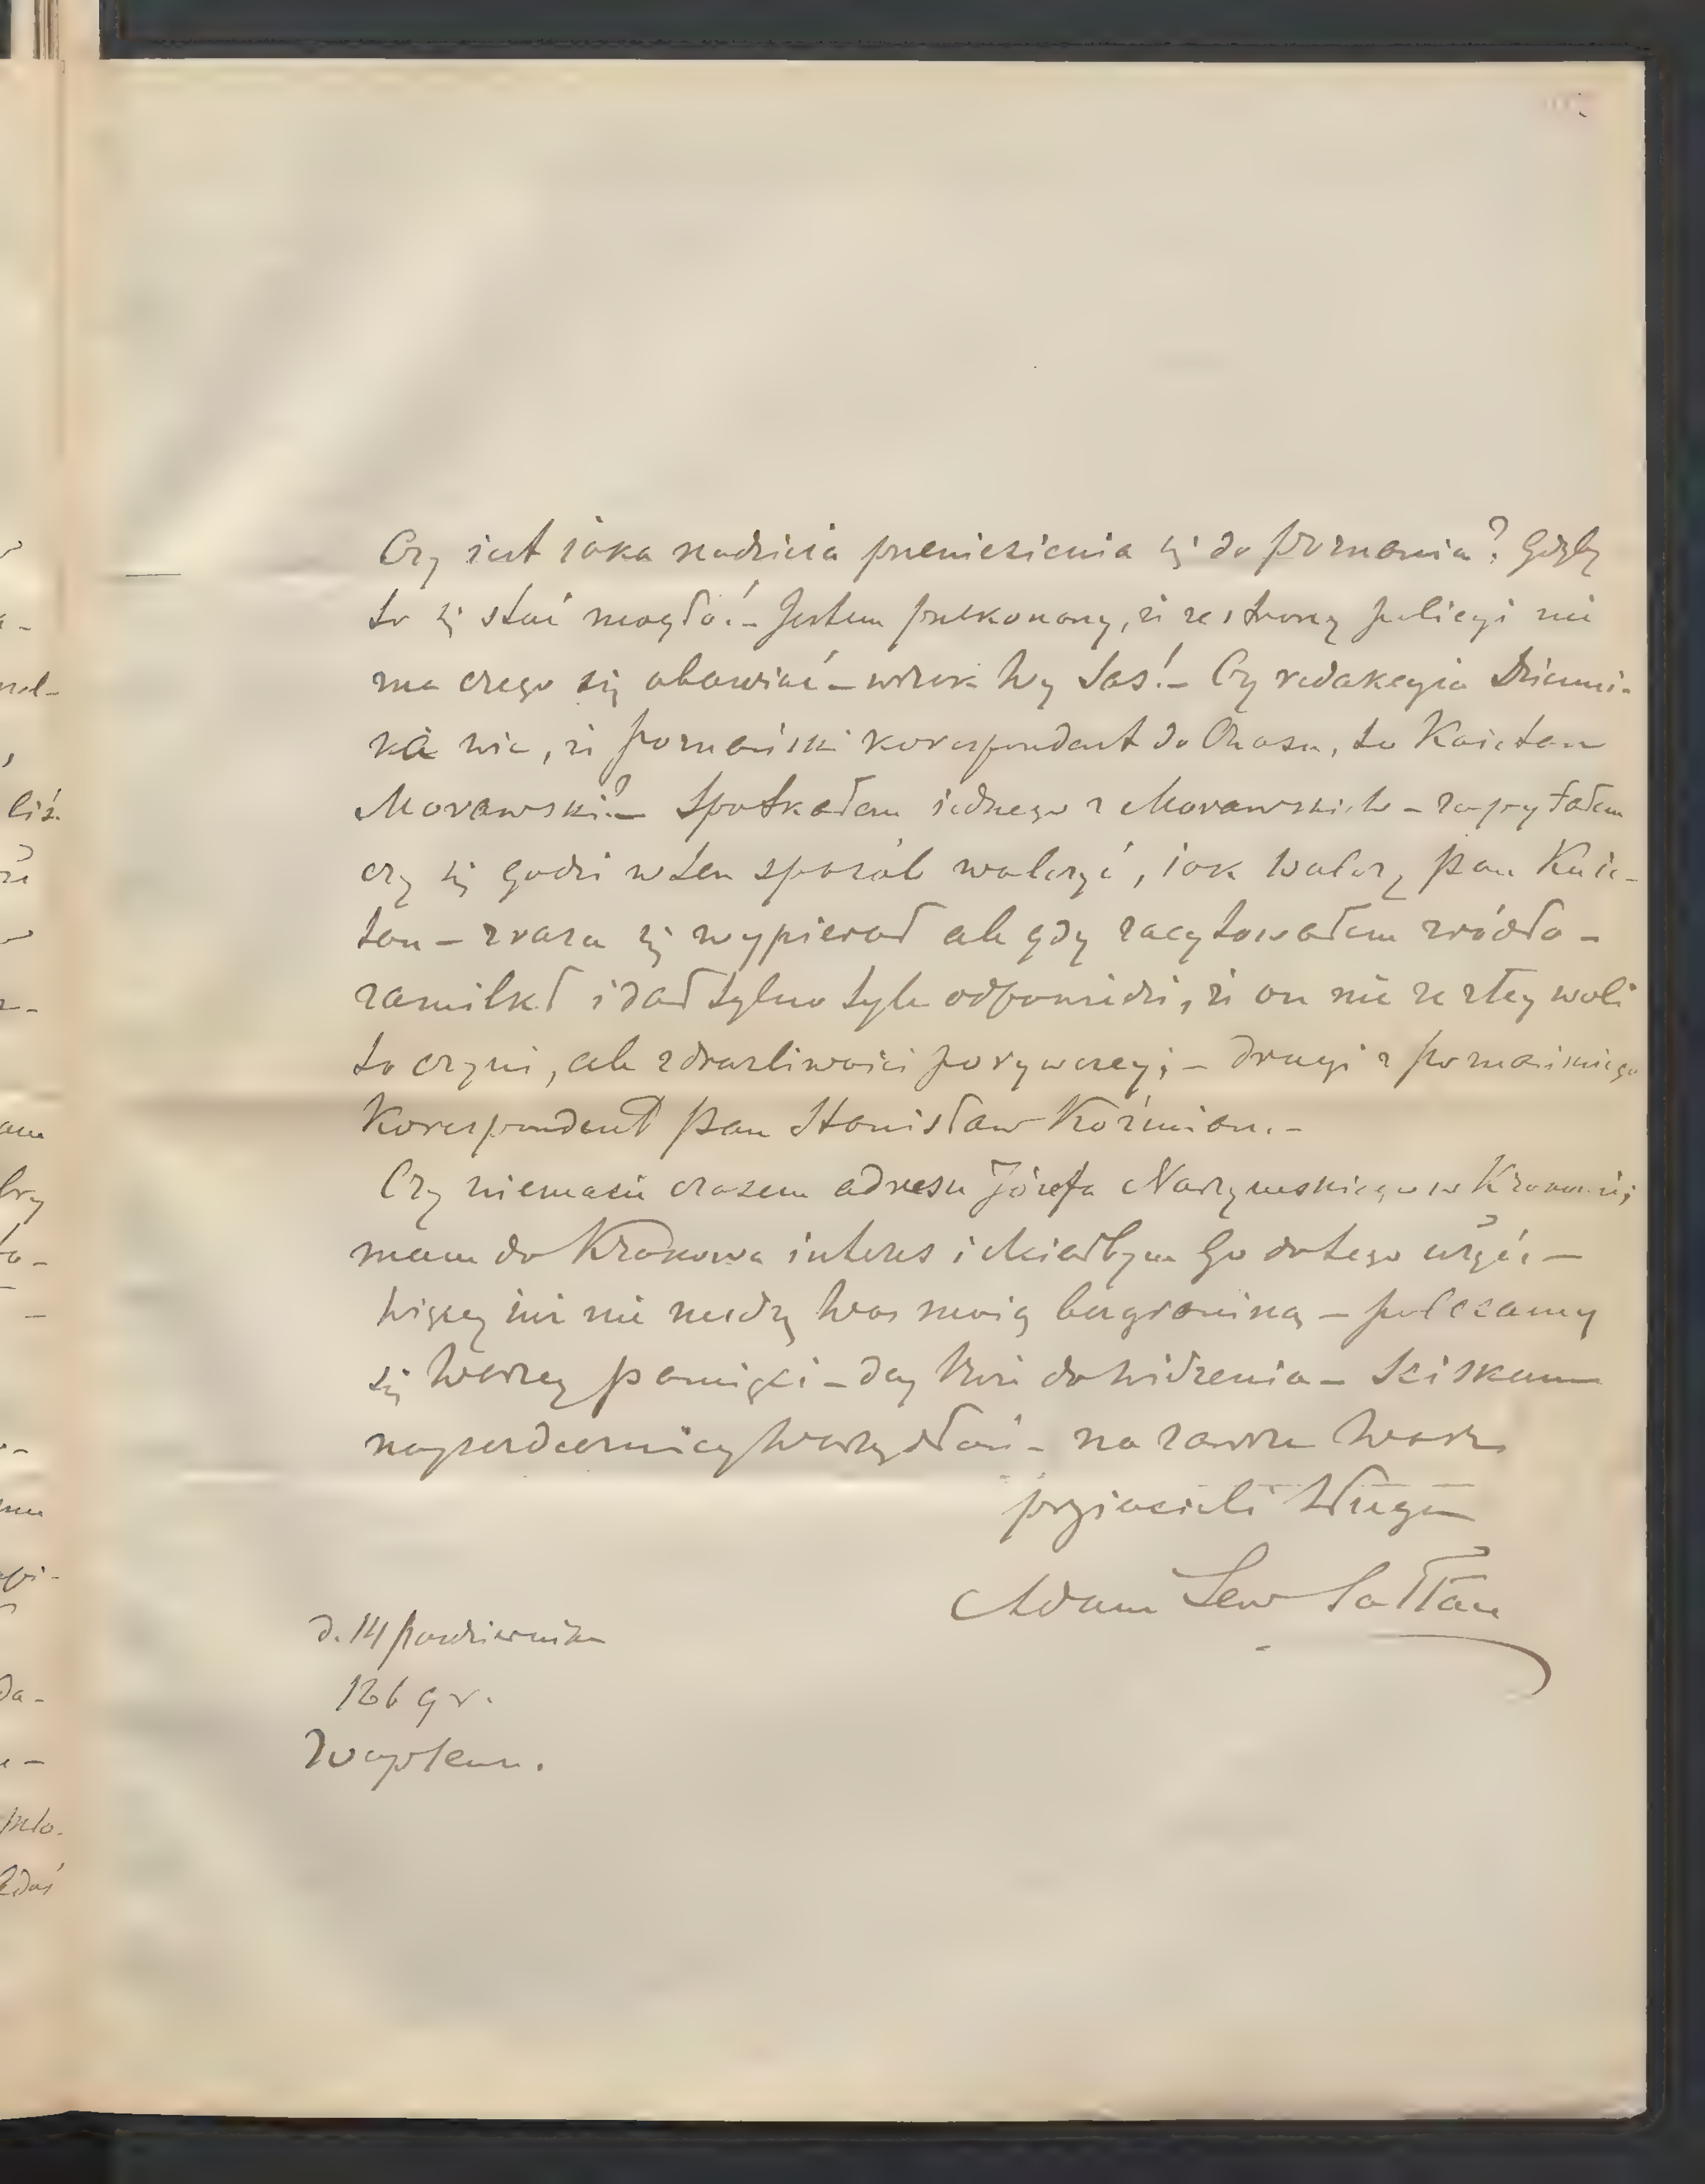 Czy iest iaka nadzieia przeniesienia się do Poznania? Gdyby
to się stać mogło! – Jestem przekonany, że ze strony policyi nie
ma czego się obawiać – wszak Wy Sas! – Czy redakcyia Dzienni-
ka wie, że poznański korespondent do Czasu, to Kaietan
Morawski? – Spotkałem iednego z Morawskich – zapytałem
czy się godzi w ten sposób walczyć, iak walczy pan Kaie-
tan – zrazu się wypierał ale gdy zacytowałem źródło –
zamilkł i dał tylko tyle odpowiedzi, że on nie ze złey woli
to czyni, ale z drażliwości porywczey; – drugi z poznańskiego
Korespondent pan Stanisław Koźmian. –
Czy niemasz czasem adresu Józefa Narzymskiego w Krakowie;
mam do Krakowa interes i chciałbym Go do tego użyć –
Więcey iuż nie nudzę Was moią bazgraniną – polecamy
się Waszey pamięci – day Boże do widzenia – Sciskam
nayserdeczniey Waszą dłoń – na zawsze Wasz
przyiaciel i sługa
Adam Lew Sołtan
d. 14 Października
186 9 r.
Waplewo.